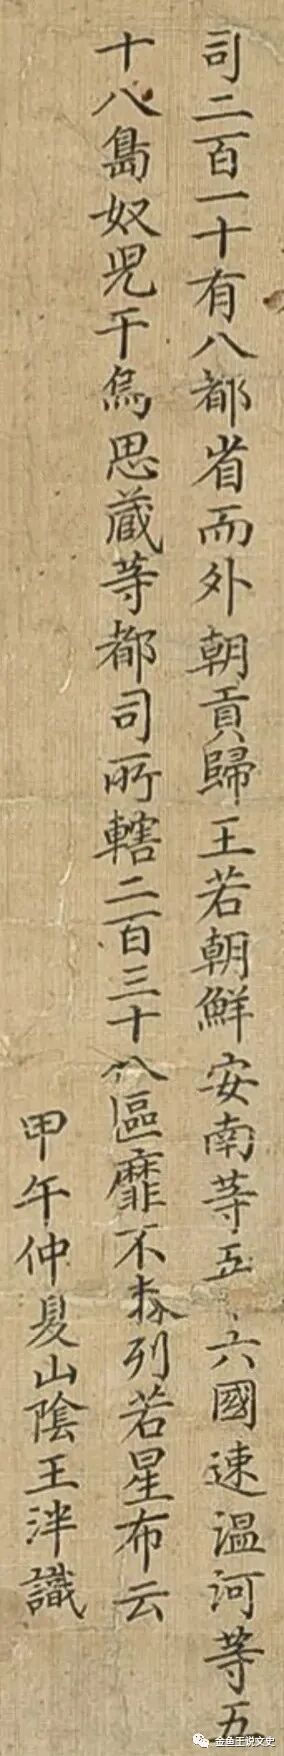 司二百一十有八都省而外朝貢歸王若朝鮮安南等五六國速温河等五
十八島奴児干烏思蔵等都司所轄二百三十八區靡不森列若星布云
甲午仲夏山陰王泮識
金鱼王说文史